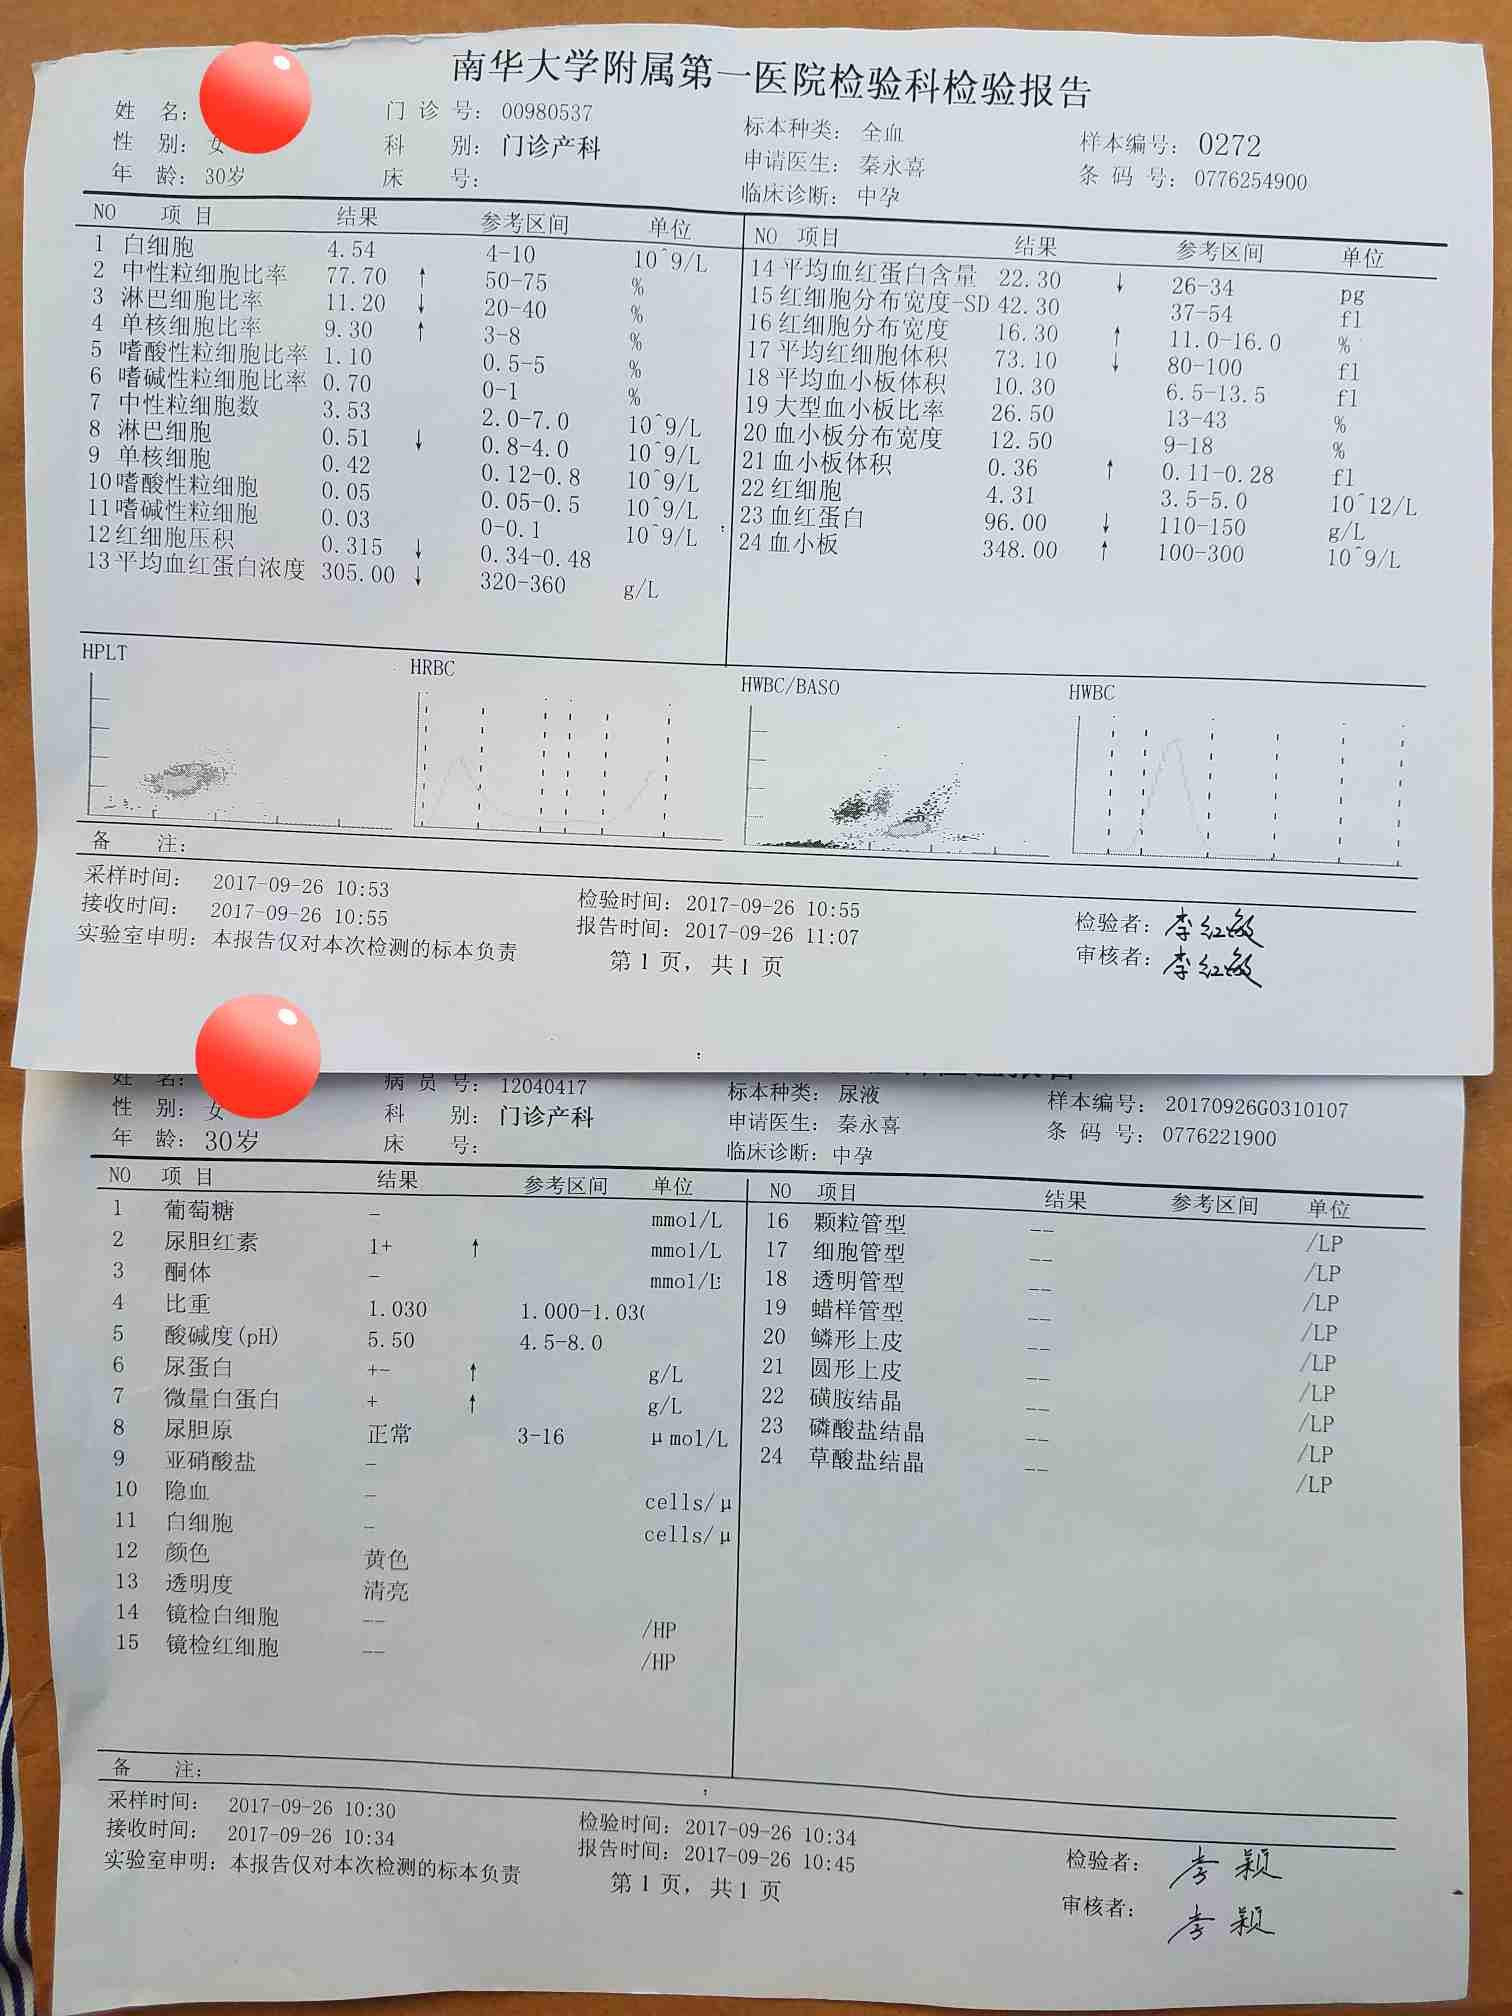 南华大学附属第一医院检验科检验报告
姓 名： 门 诊 号： 00980537 标本种类： 全血 样本编号： 0272
性 别： 女 科 别： 门诊产科 申请医生： 秦永喜 条 码 号： 0776254900
年 龄： 30岁 床 号： 临床诊断： 中孕
NO 项 目 结果 参考区间 单位 NO 项目 结果 参考区间 单位
1 白细胞 4.54 4-10 10^9/L
2 中性粒细胞比率 77.70 ↑ 50-75 %
3 淋巴细胞比率 11.20 ↓ 20-40 %
4 单核细胞比率 9.30 ↑ 3-8 %
5 嗜酸性粒细胞比率 1.10 0.5-5 %
6 嗜碱性粒细胞比率 0.70 0-1 %
7 中性粒细胞数 3.53 2.0-7.0 10^9/L
8 淋巴细胞 0.51 ↓ 0.8-4.0 10^9/L
9 单核细胞 0.42 0.12-0.8 10^9/L
10 嗜酸性粒细胞 0.05 0.05-0.5 10^9/L
11 嗜碱性粒细胞 0.03 0-0.1 10^9/L
12 红细胞压积 0.315 ↓ 0.34-0.48
13 平均血红蛋白浓度 305.00 ↓ 320-360 g/L
14 平均血红蛋白含量 22.30 ↓ 26-34 pg
15 红细胞分布宽度-SD 42.30 37-54 fl
16 红细胞分布宽度 16.30 ↑ 11.0-16.0 %
17 平均红细胞体积 73.10 ↓ 80-100 fl
18 平均血小板体积 10.30 6.5-13.5 fl
19 大型血小板比率 26.50 13-43 %
20 血小板分布宽度 12.50 9-18 %
21 血小板体积 0.36 ↑ 0.11-0.28 fl
22 红细胞 4.31 3.5-5.0 10^12/L
23 血红蛋白 96.00 ↓ 110-150 g/L
24 血小板 348.00 ↑ 100-300 10^9/L
HPLT HRBC HWBC/BASO HWBC
备 注：
采样时间： 2017-09-26 10:53 检验时间：2017-09-26 10:55 检验者：李红敏
接收时间： 2017-09-26 10:55 报告时间：2017-09-26 11:07 审核者：李红敏
实验室申明：本报告仅对本次检测的标本负责 第 1 页，共 1 页
姓 名： 病 员 号： 12040417 标本种类： 尿液 样本编号： 20170926G0310107
性 别： 女 科 别： 门诊产科 申请医生： 秦永喜 条 码 号： 0776221900
年 龄： 30岁 床 号： 临床诊断： 中孕
NO 项 目 结果 参考区间 单位 NO 项目 结果 参考区间 单位
1 葡萄糖 - mmol/L
2 尿胆红素 1+ ↑ mmol/L
3 酮体 - mmol/L
4 比重 1.030 1.000-1.030
5 酸碱度(pH) 5.50 4.5-8.0
6 尿蛋白 +- ↑ g/L
7 微量白蛋白 + ↑ g/L
8 尿胆原 正常 3-16 μmol/L
9 亚硝酸盐 -
10 隐血 - cells/μ
11 白细胞 - cells/μ
12 颜色 黄色
13 透明度 清亮
14 镜检白细胞 -- /HP
15 镜检红细胞 -- /HP
16 颗粒管型 -- /LP
17 细胞管型 -- /LP
18 透明管型 -- /LP
19 蜡样管型 -- /LP
20 鳞形上皮 -- /LP
21 圆形上皮 -- /LP
22 磺胺结晶 -- /LP
23 磷酸盐结晶 -- /LP
24 草酸盐结晶 -- /LP
备 注：
采样时间： 2017-09-26 10:30 检验时间：2017-09-26 10:34 检验者： 李颖
接收时间： 2017-09-26 10:34 报告时间：2017-09-26 10:45 审核者： 李颖
实验室申明：本报告仅对本次检测的标本负责 第 1 页，共 1 页